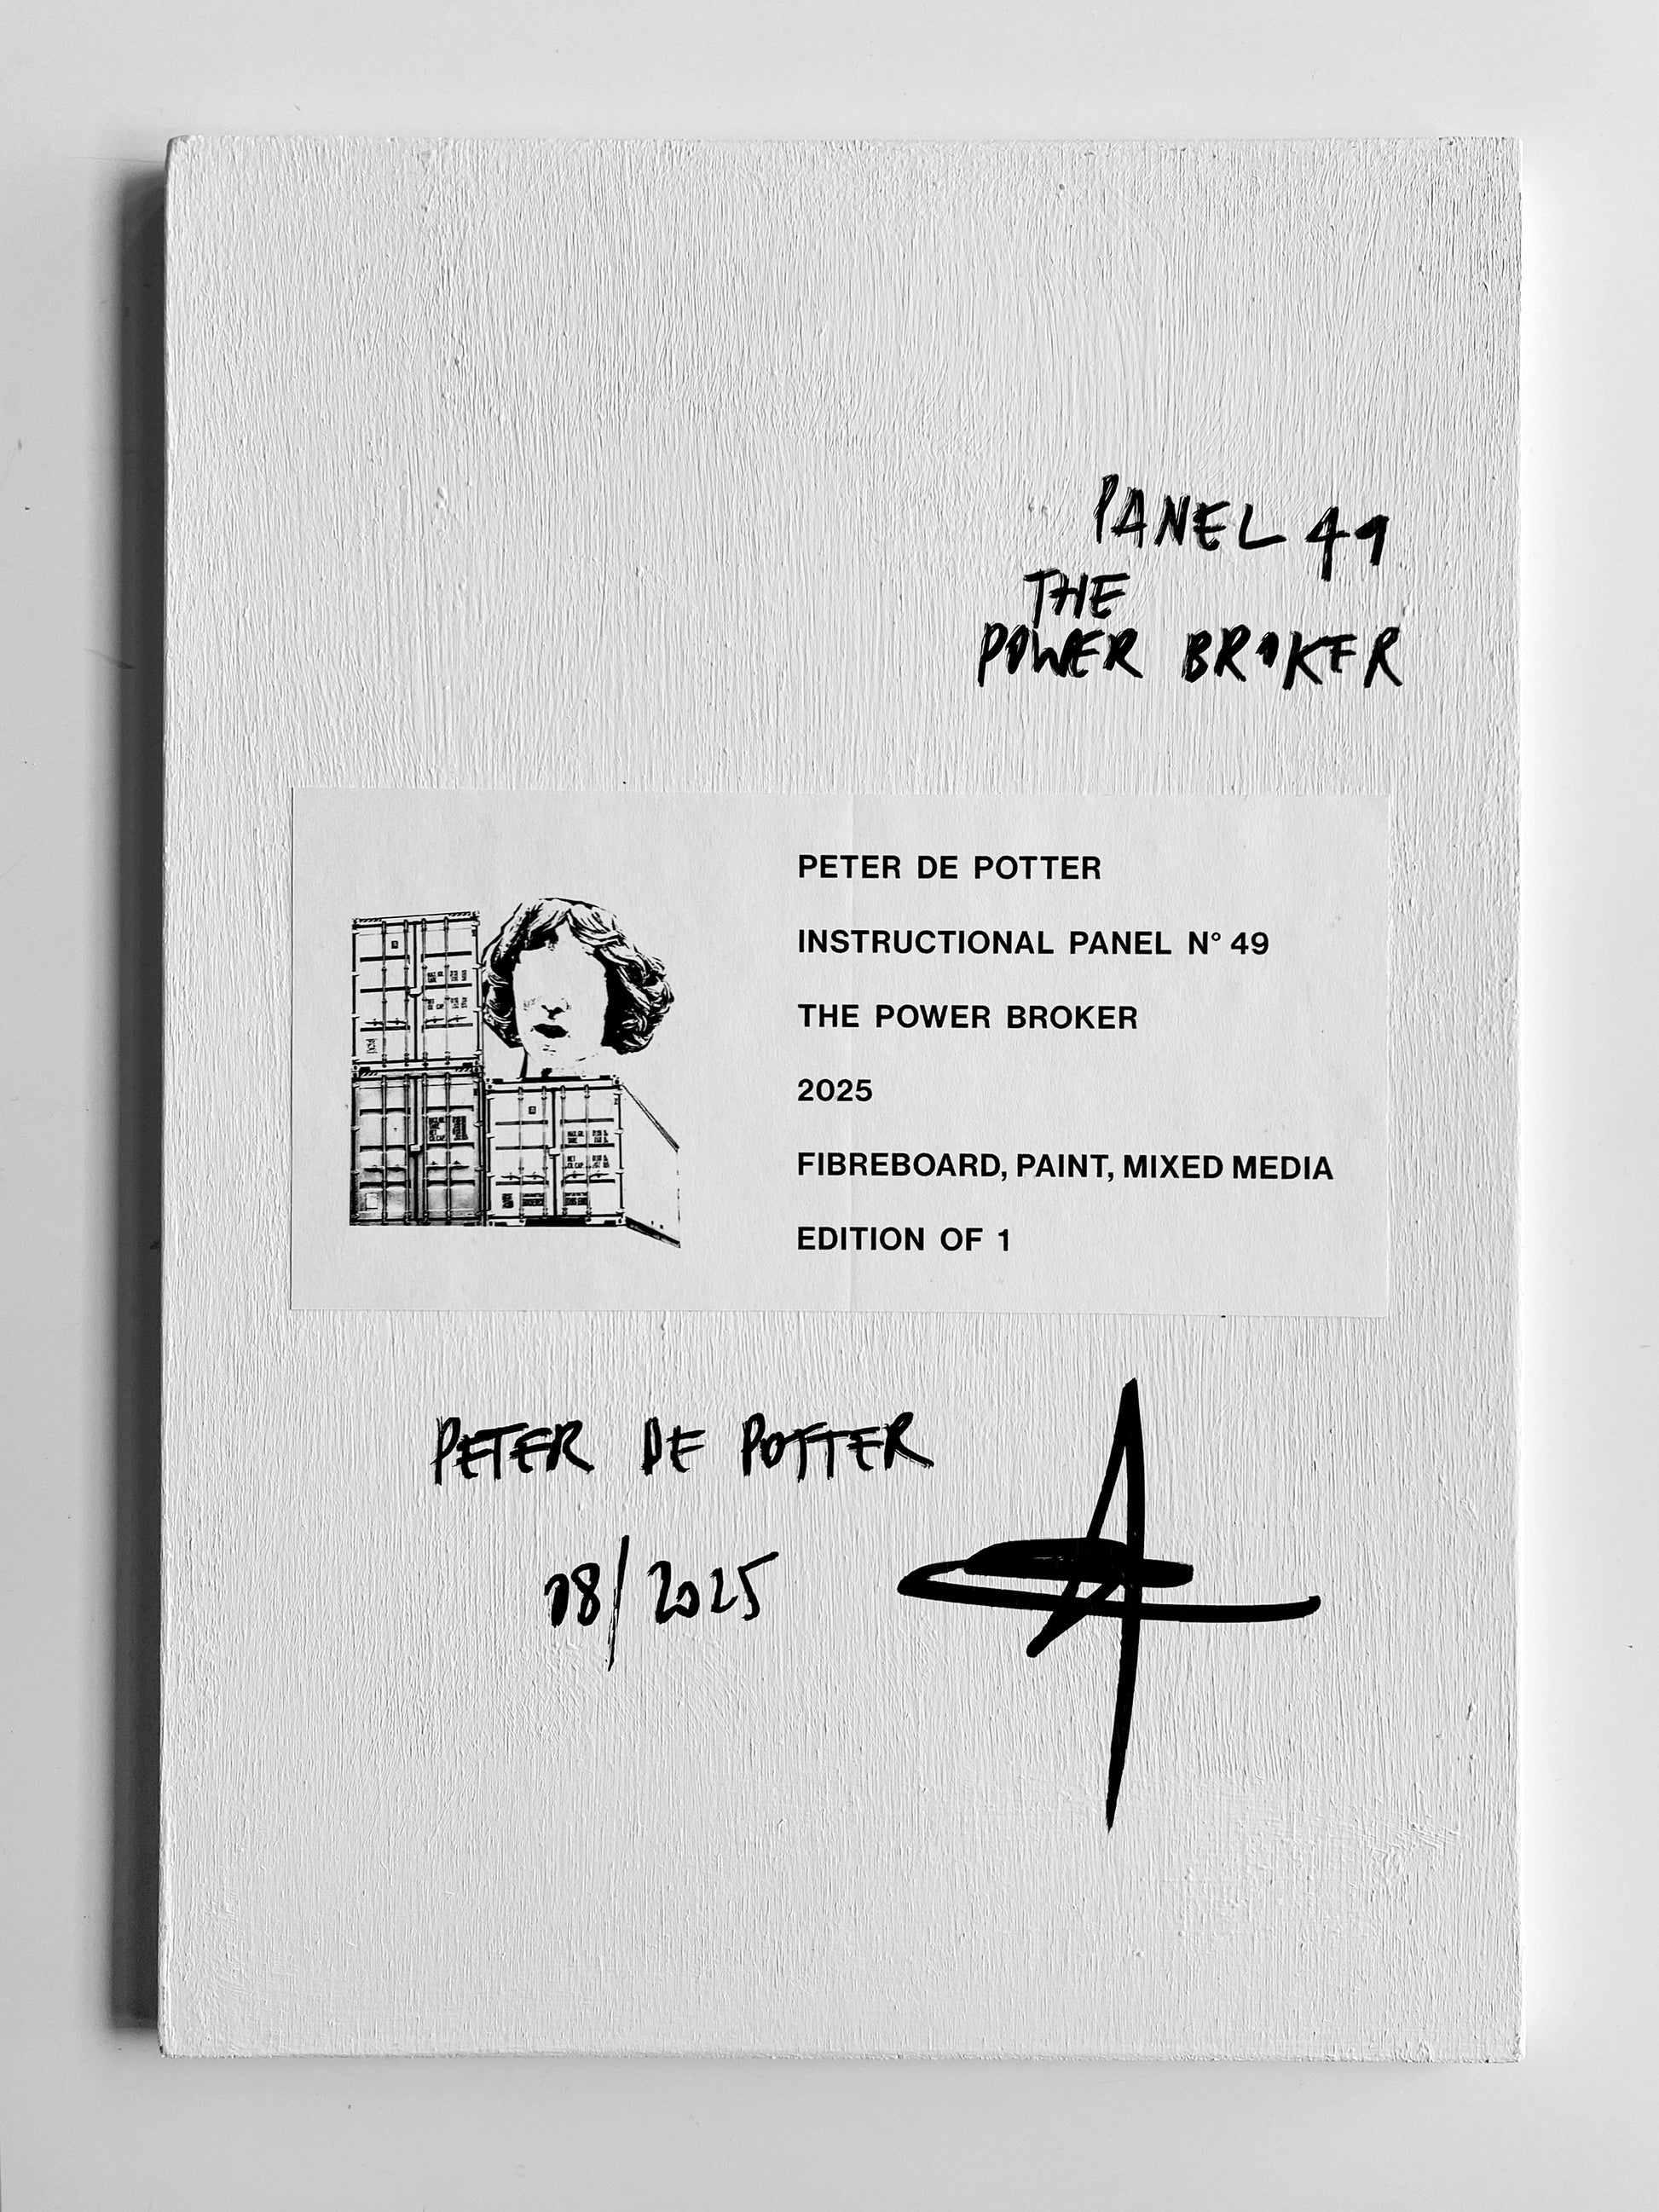 PANEL 49
THE
POWER BROKER
PETER DE POTTER
INSTRUCTIONAL PANEL N° 49
THE POWER BROKER
2025
FIBREBOARD, PAINT, MIXED MEDIA
EDITION OF 1
PETER DE POTTER
08/2025